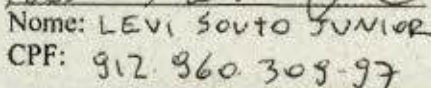 Nome: LEVI SOUTO JUNIOR
CPF: 912.960.309-97